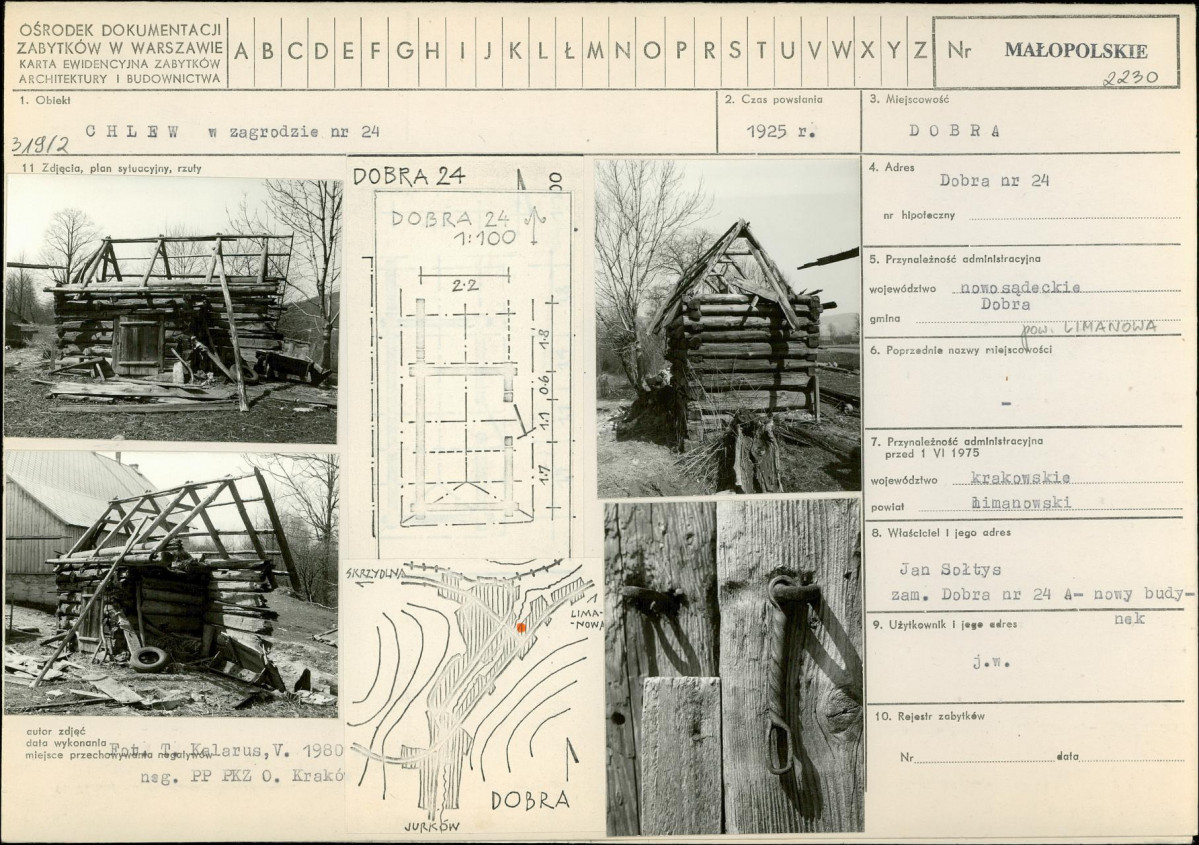 OŚRODEK DOKUMENTACJI
ZABYTKÓW W WARSZAWIE
KARTA EWIDENCYJNA ZABYTKÓW
ARCHITEKTURY I BUDOWNICTWA
A B C D E F G H I J K L Ł M N O P R S T U V W X Y Z
Nr MAŁOPOLSKIE
2230
1. Obiekt
CHLEW w zagrodzie nr 24
319/2
2. Czas powstania
1925 r.
3. Miejscowość
DOBRA
11 Zdjęcia, plan sytuacyjny, rzuty
DOBRA 24
00
DOBRA 24
1:100
2.2
1.8
0.6
1.1
1.7
SKRZYDLNA
LIMA-
-NOWA
DOBRA
JURKÓW
4. Adres
Dobra nr 24
nr hipoteczny
5. Przynależność administracyjna
województwo nowosądeckie
Dobra
gmina
pow. LIMANOWA
6. Poprzednie nazwy miejscowości
-
7. Przynależność administracyjna
przed 1 VI 1975
województwo krakowskie
powiat limanowski
8. Właściciel i jego adres
Jan Sołtys
zam. Dobra nr 24 A- nowy budy-
nek
9. Użytkownik i jego adres
j.w.
10. Rejestr zabytków
Nr data
autor zdjęć
data wykonania
Fot. T. Kalarus, V. 1980
miejsce przechowywania negatywów
neg. PP PKZ O. Krakó